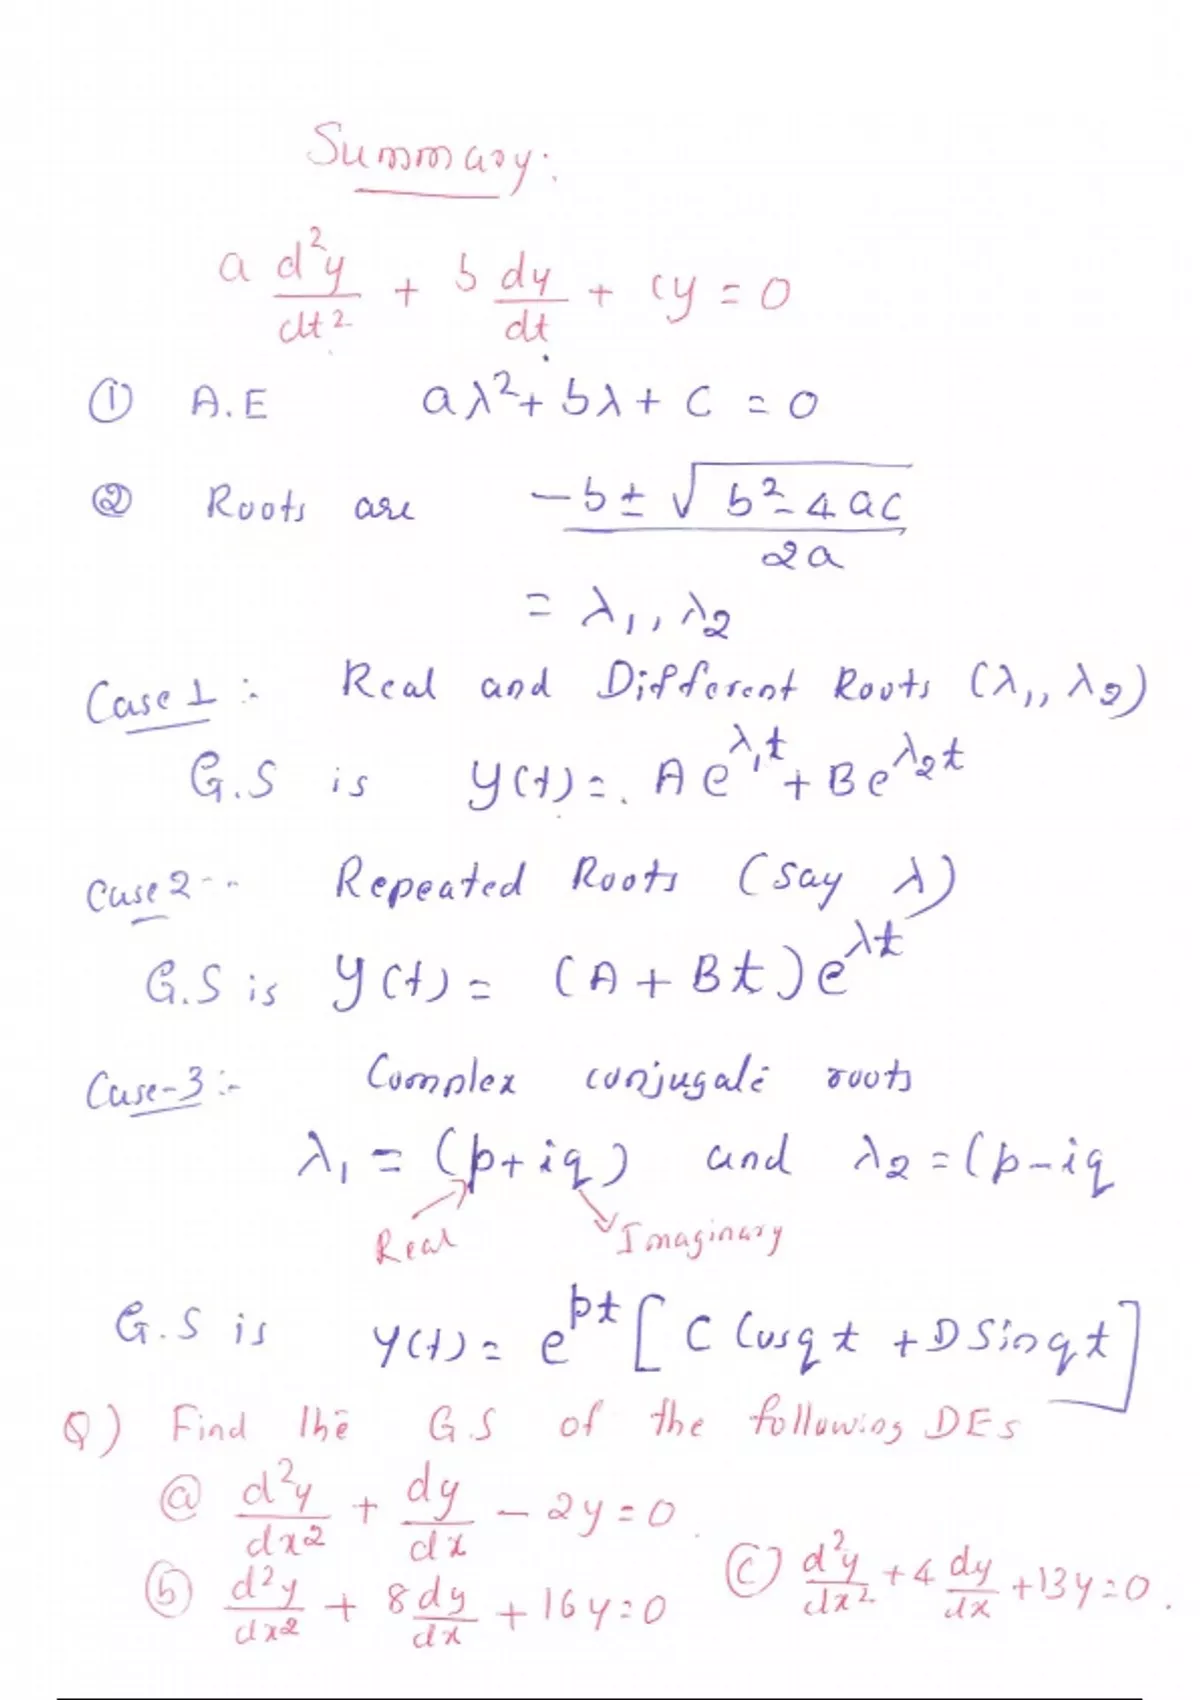 Summary:
a d²y/dt² + b dy/dt + cy = 0
① A.E aλ² + bλ + c = 0
② Roots are (-b ± √(b² - 4ac))/2a
= λ₁, λ₂
Case 1 :- Real and Different Roots (λ₁, λ₂)
G.S is y(t) = Ae^(λ₁t) + Be^(λ₂t)
Case 2 :- Repeated Roots (say λ)
G.S is y(t) = (A + Bt)e^(λt)
Case-3 :- Complex conjugate roots
λ₁ = (p + iq) and λ₂ = (p - iq
Real Imaginary
G.S is y(t) = e^(pt) [C Cosqt + D Sinqt]
Q) Find the G.S of the following DEs
ⓐ d²y/dx² + dy/dx - 2y = 0.
ⓑ d²y/dx² + 8 dy/dx + 16y = 0
ⓒ d²y/dx² + 4 dy/dx + 13y = 0.